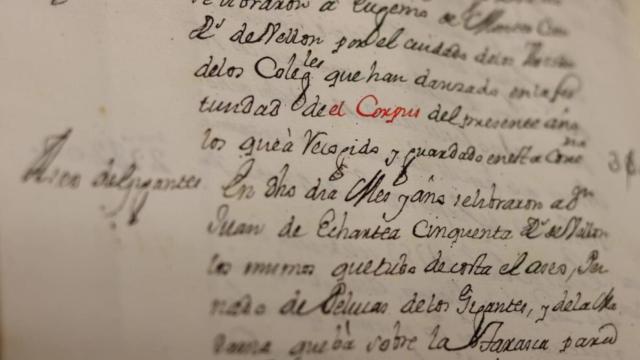 se libraron a Eugenio de
Rˢ. de Vellon por el cuidado de los
de los Colegˡᵉˢ que han danzado en la fes
tividad de el Corpus del presente año
los que à Recogido y guardado en esta
Aseo de Gigantes
En dho dia Mes y año se libraron a
Juan de Echartea Cinquenta Rˢ. de Vellon
los mismos que tubo de costa el aseo, Pei
nado de Pelucas de los Gigantes, y de la Ma
dama que bà sobre la Tarasca para